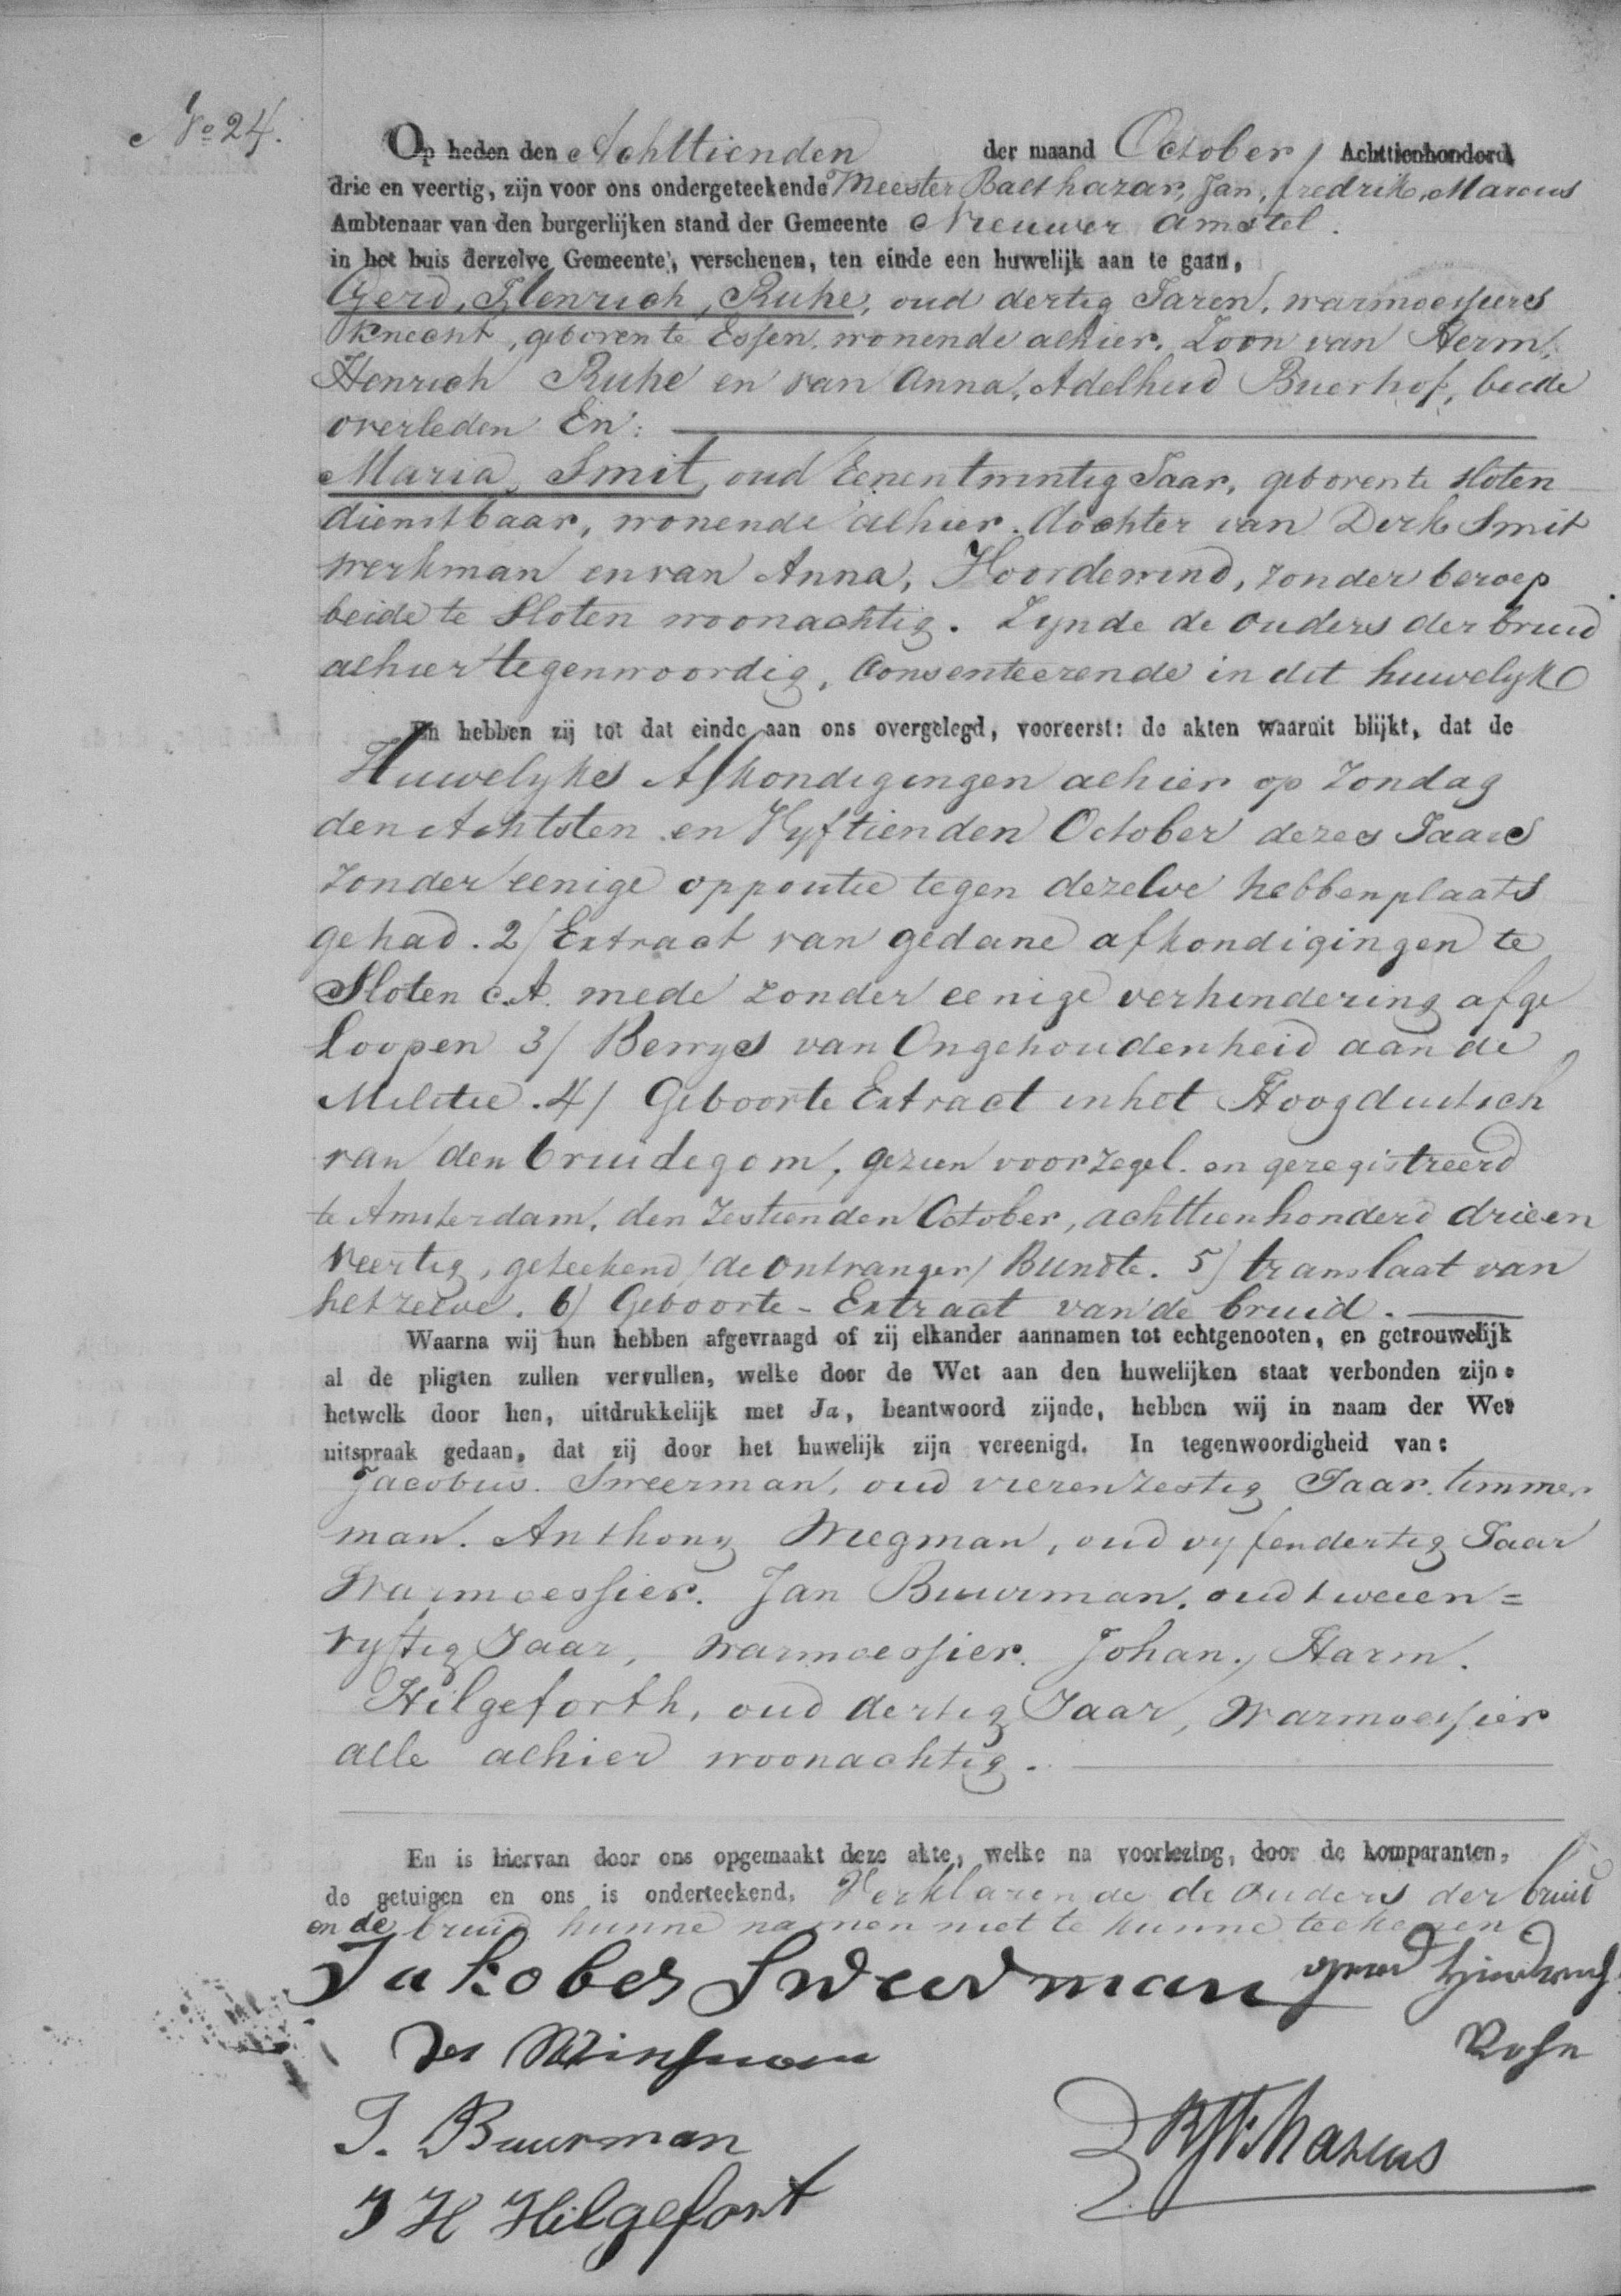 No 24.
Op heden den Achttienden der maand October / Achttienhonderd
drie en veertig, zijn voor ons ondergeteekende Meester Balthazar, Jan, fredrik, Marcus
Ambtenaar van den burgerlijken stand der Gemeente Nieuwer Amstel.
in het huis derzelve Gemeente, verschenen, ten einde een huwelijk aan te gaan,
Gerd, Henrich, Ruhe, oud dertig Jaren, warmoessiers
knecht, geboren te Essen, wonende alhier. Zoon van Herm,
Henrich Ruhe en van Anna, Adelheid Buerhof, beide
overleden En:
Maria, Smit, oud Eenentwintig Jaar, geboren te Sloten
dienstbaar, wonende alhier. dochter van Derk Smit
werkman en van Anna, Hoordewind, zonder beroep
beide te Sloten woonachtig. Zynde de ouders der bruid
alhier tegenwoordig, Consenteerende in dit huwelyk
En hebben zij tot dat einde aan ons overgelegd, vooreerst: de akten waaruit blijkt, dat de
Huwelykes Afkondigingen alhier op Zondag
den Achtsten en Vyftienden October dezes Jaars
Zonder eenige oppoutie tegen dezelve hebben plaats
gehad. 2/ Extract van gedane afkondigingen te
Sloten c.A. mede zonder eenige verhindering afge
loopen 3/ Bewys van Ongehoudenheid aan de
Militie. 4/ Geboorte Extract in het Hoogduitsch
van den bruidegom, gezien voor zegel. en geregistreerd
te Amsterdam, den Zestienden October, achttienhonderd drieen
Veertig, geteekend / de ontvanger / Bundte. 5/ translaat van
hetzelve. 6/ Geboorte-Extract van de bruid.
Waarna wij hun hebben afgevraagd of zij elkander aannamen tot echtgenooten, en getrouwelijk
al de pligten zullen vervullen, welke door de Wet aan den huwelijken staat verbonden zijn.
hetwelk door hen, uitdrukkelijk met Ja, beantwoord zijnde, hebben wij in naam der Wet
uitspraak gedaan, dat zij door het huwelijk zijn vereenigd. In tegenwoordigheid van:
Jacobus. Sweerman, oud vierenzestig Jaar, timmer
man. Anthony Wegman, oud vyfendertig Jaar
Warmoessier. Jan Buurman, oud tweeen=
vyftig Jaar, Warmoessier. Johan, Harm.
Hilgeforth, oud dertig Jaar, Warmoessier
alle alhier woonachtig.
En is hiervan door ons opgemaakt deze akte, welke na voorlezing, door de komparanten,
de getuigen en ons is onderteekend. Verklarende de ouders der bruid
en de bruid hunne namen niet te kunne teekenen
Jakobes Sweerman gerd Hindrich
Ruhe
J. Buurman
J H Hilgefort
BJF Marcus